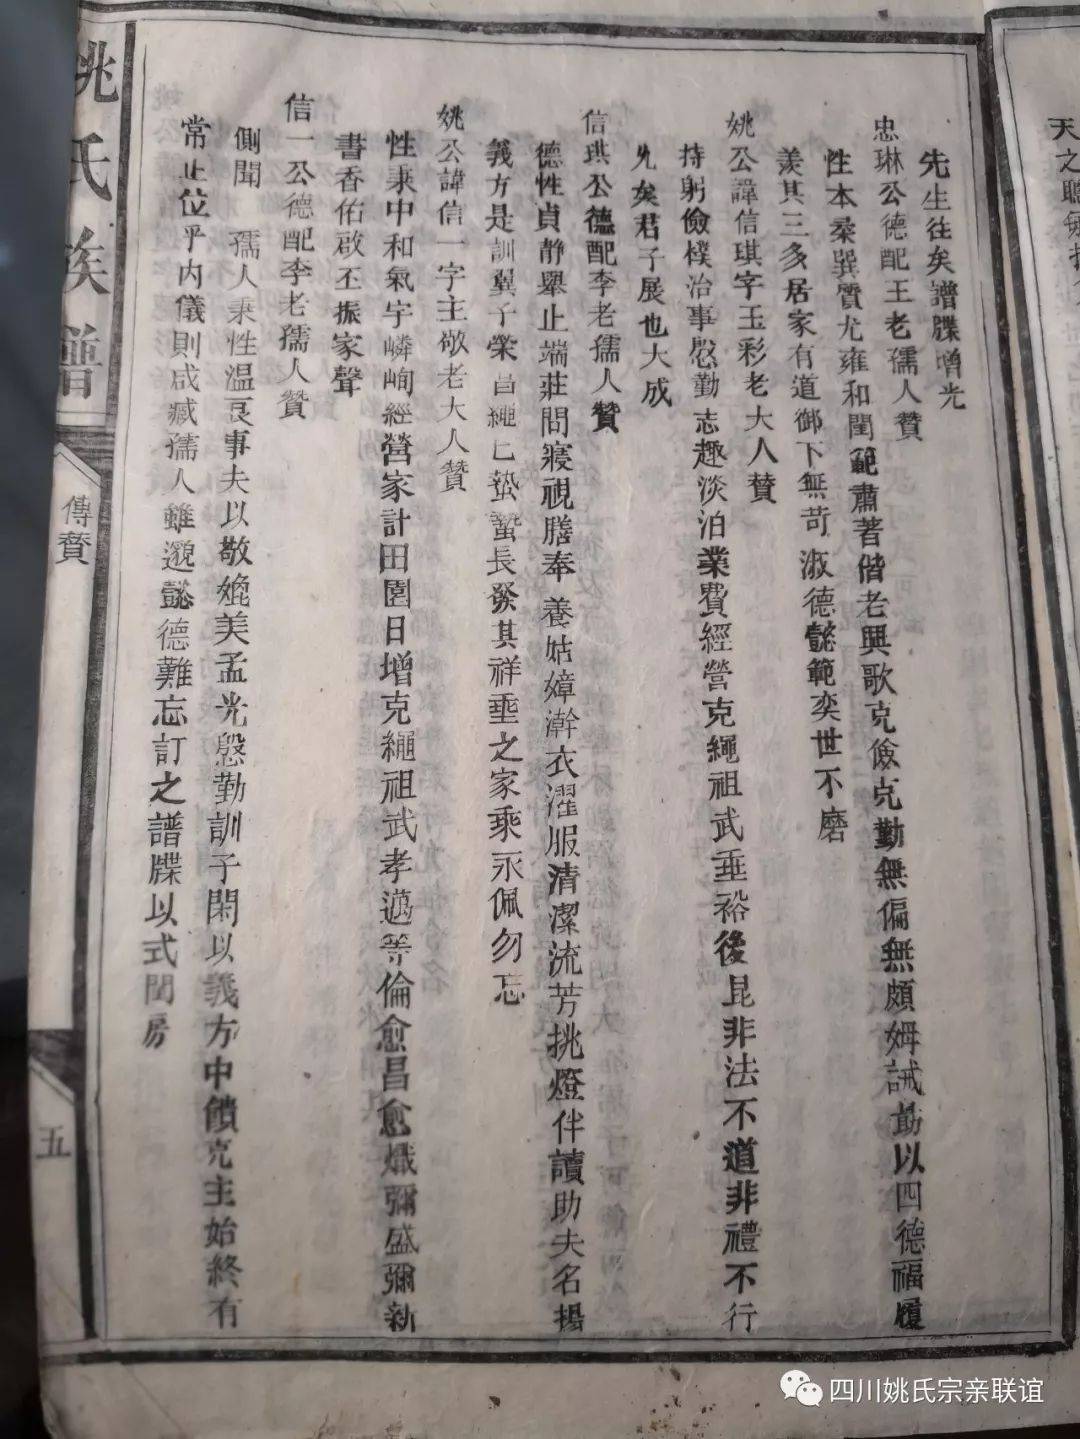 先生往矣譜牒增光
忠琳公德配王老孺人贊
性本柔巽質尤雍和閨範肅著偕老興歌克儉克勤無偏無頗姆誡勗以四德福履
羨其三多居家有道御下無苛淑德懿範奕世不磨
姚公諱信琪字玉彩老大人贊
持躬儉樸治事慇勤志趣淡泊業費經營克繩祖武垂裕後昆非法不道非禮不行
允矣君子展也大成
信琪公德配李老孺人贊
德性貞靜舉止端莊問寢視膳奉養姑嫜澣衣濯服清潔流芳挑燈伴讀助夫名揚
義方是訓翼子榮昌繩已蟄蟄長發其祥垂之家乘永佩勿忘
姚公諱信一字主敬老大人贊
性秉中和氣宇嶙峋經營家計田園日增克繩祖武孝邁等倫愈昌愈熾彌盛彌新
書香佑啟丕振家聲
信一公德配李老孺人贊
側聞 孺人秉性溫良事夫以敬媲美孟光慇勤訓子閑以義方中饋克主始終有
常正位乎內儀則成臧孺人雖邈懿德難忘訂之譜牒以式閨房
姚氏族譜
傳贊
五
天之聰
四川姚氏宗亲联谊